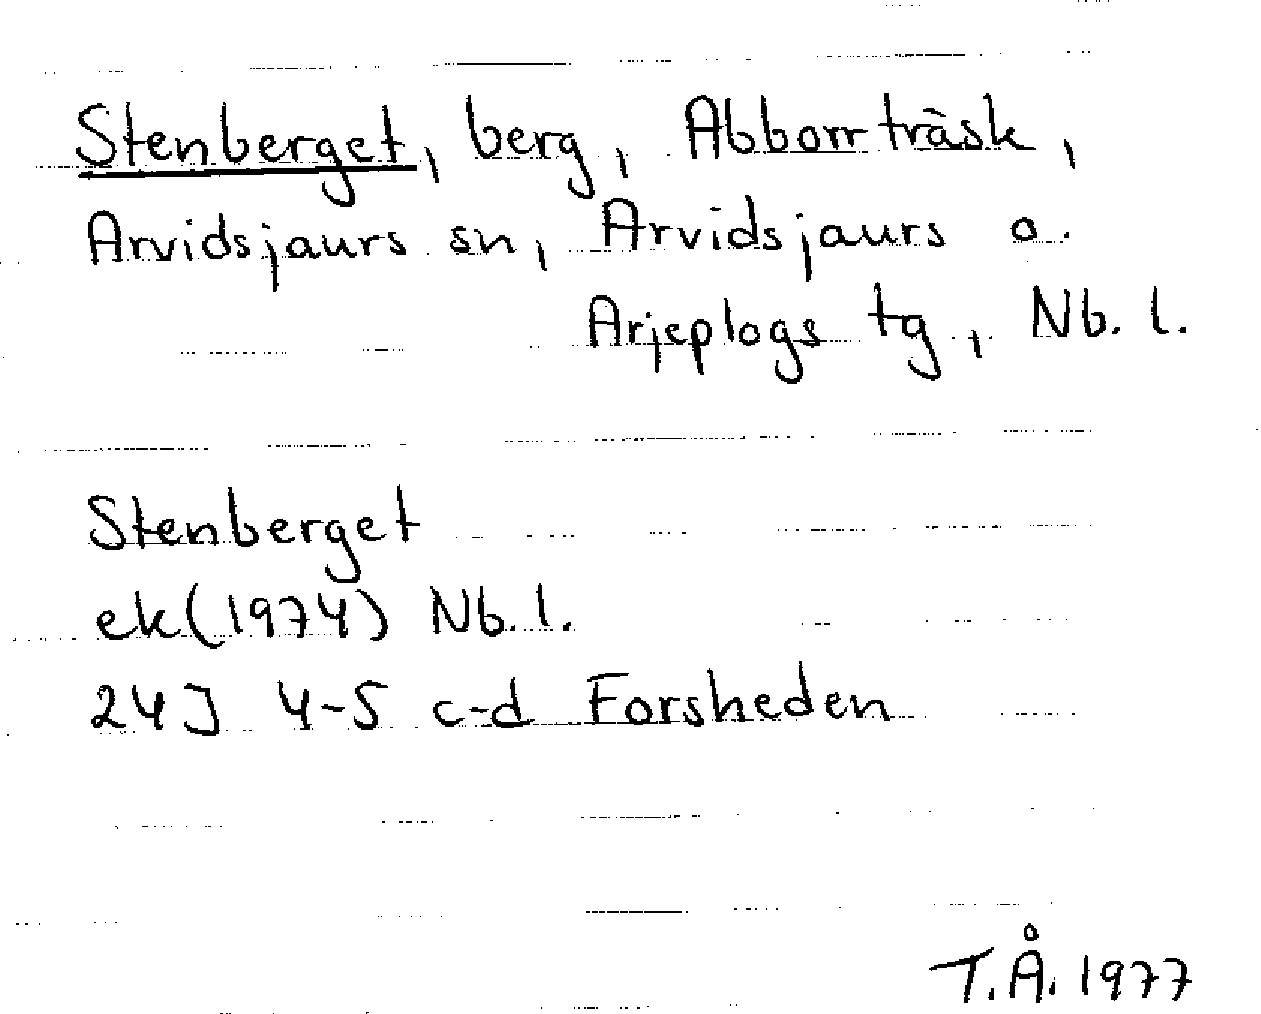 Stenberget, berg, Abborrträsk,
Arvidsjaurs sn, Arvidsjaurs o.
Arjeplogs tg, Nb. l.
Stenberget
ek (1974) Nb. l.
24J 4-5 c-d Forsheden
T.Å. 1977